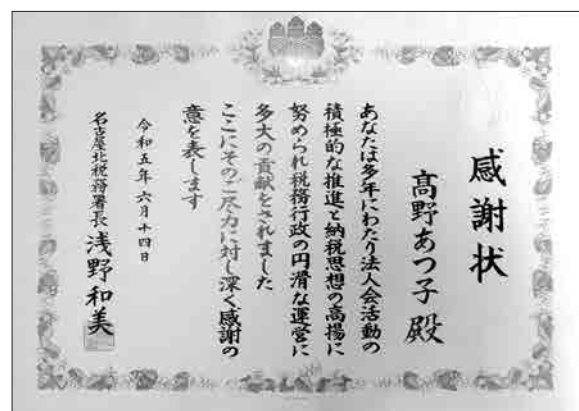 感謝状
髙野あつ子殿
あなたは多年にわたり法人会活動の
積極的な推進と納税思想の高揚に
努められ税務行政の円滑な運営に
多大の貢献をされました
ここにそのご尽力に対し深く感謝の
意を表します
令和五年六月十四日
名古屋北税務署長 浅野和美